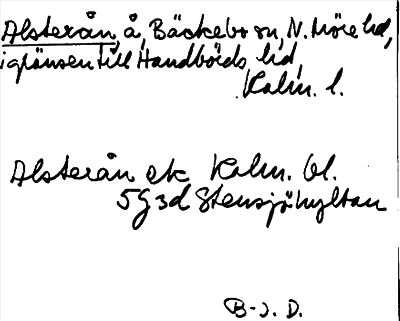 Alsterån, å, Bäckebo sn, N. Möre hd,
i gränsen till Handbörds hd,
Kalm. l.
Alsterån ek Kalm. bl.
5G3d Stensjöhyltan
B-J. D.